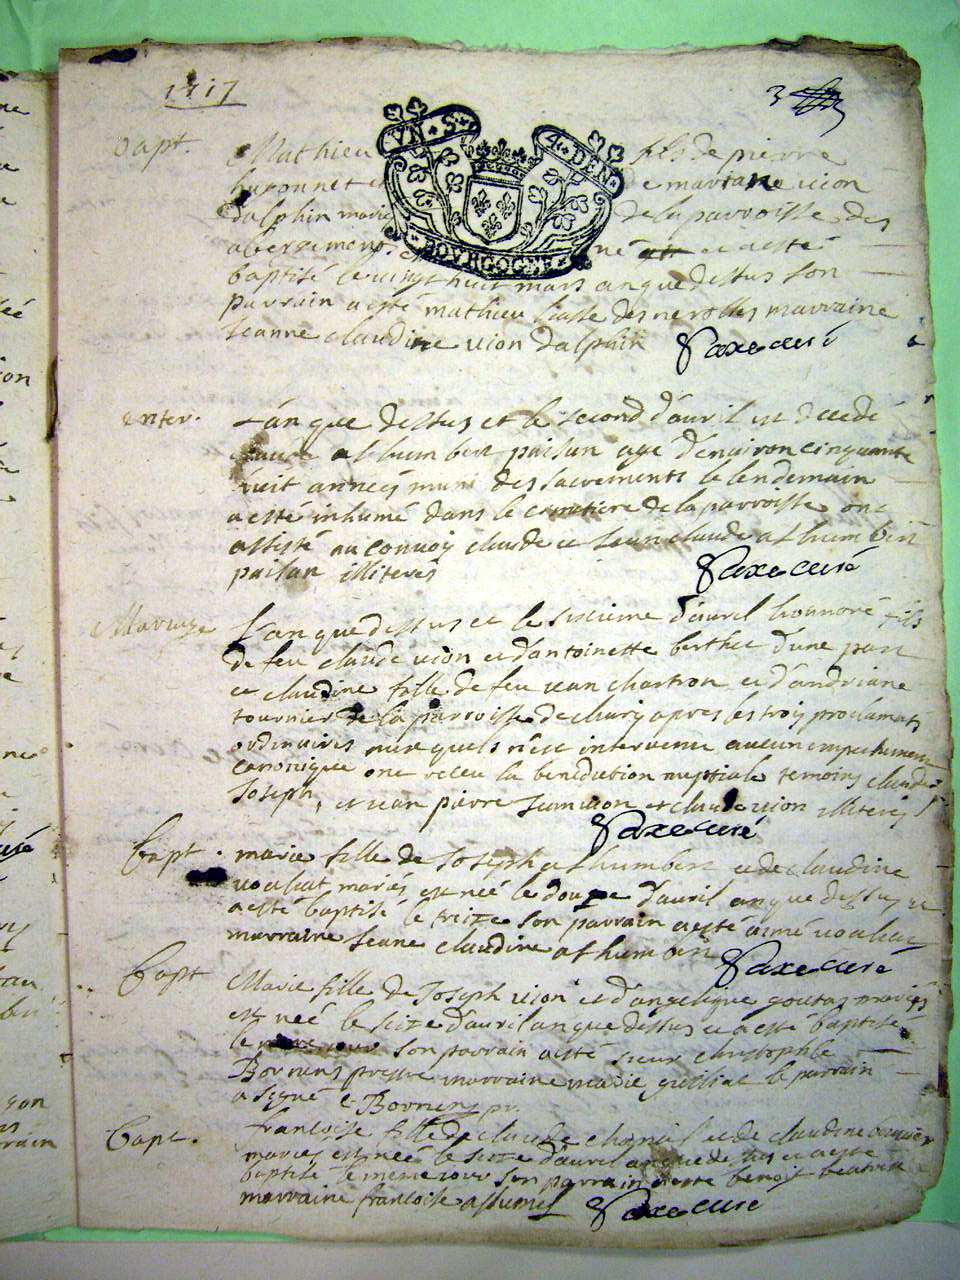 1717
3
bapt.
Mathieu fils de pierre
huronnet et de mariane vion
dalphin mariés de la parroisse des
abergemens né et a esté
baptisé le vingt huit mars an que dessus son
parrain a esté mathieu des nerolles marraine
Jeanne claudine vion dalphin Saxe curé
VN S. 4. DEN.
BOVRGOGE
enter.
L'an que dessus et le second d'avril est decedé
claude athumbert paisan agé d'environ cinquante
huit années muni des sacrements le lendemain
a esté inhumé dans le cimetiere de la parroisse ont
assisté au convoy claude et Jean claude athumbert
paisan illiterés Saxe curé
Mariage
L'an que dessus et le sixieme d'avril honnoré fils
de feu claude vion et d'antoinette berthet d'une part
et claudine fille de feu jean chartron et d'andriane
tournier de la parroisse de apres les trois proclamats
ordinaires auxquels n'est intervenu aucun empechement
canonique ont receu la benediction nuptiale temoins claude
Joseph, et jean pierre et claude vion illiterés
Saxe curé
bapt.
marie fille de Joseph athumbert et de claudine
vouhat mariés est née le douze d'avril an que dessus et
a esté baptisé le treize son parrain a esté aimé vouhat
marraine Jeane claudine athumbert Saxe curé
bapt
Marie fille de Joseph vion et d'angelique goutas mariés
est née le seize d'avril an que dessus et a esté baptisé
le jour son parrain a esté sieur christophle
Bornens prestre marraine le parrain
a signé C Bornens pr.
bapt.
francoise fille de claude et de claudine
mariés est née le seize d'avril an que dessus et a esté
baptisé le meme jour son parrain a esté benoit
marraine francoise Saxe curé